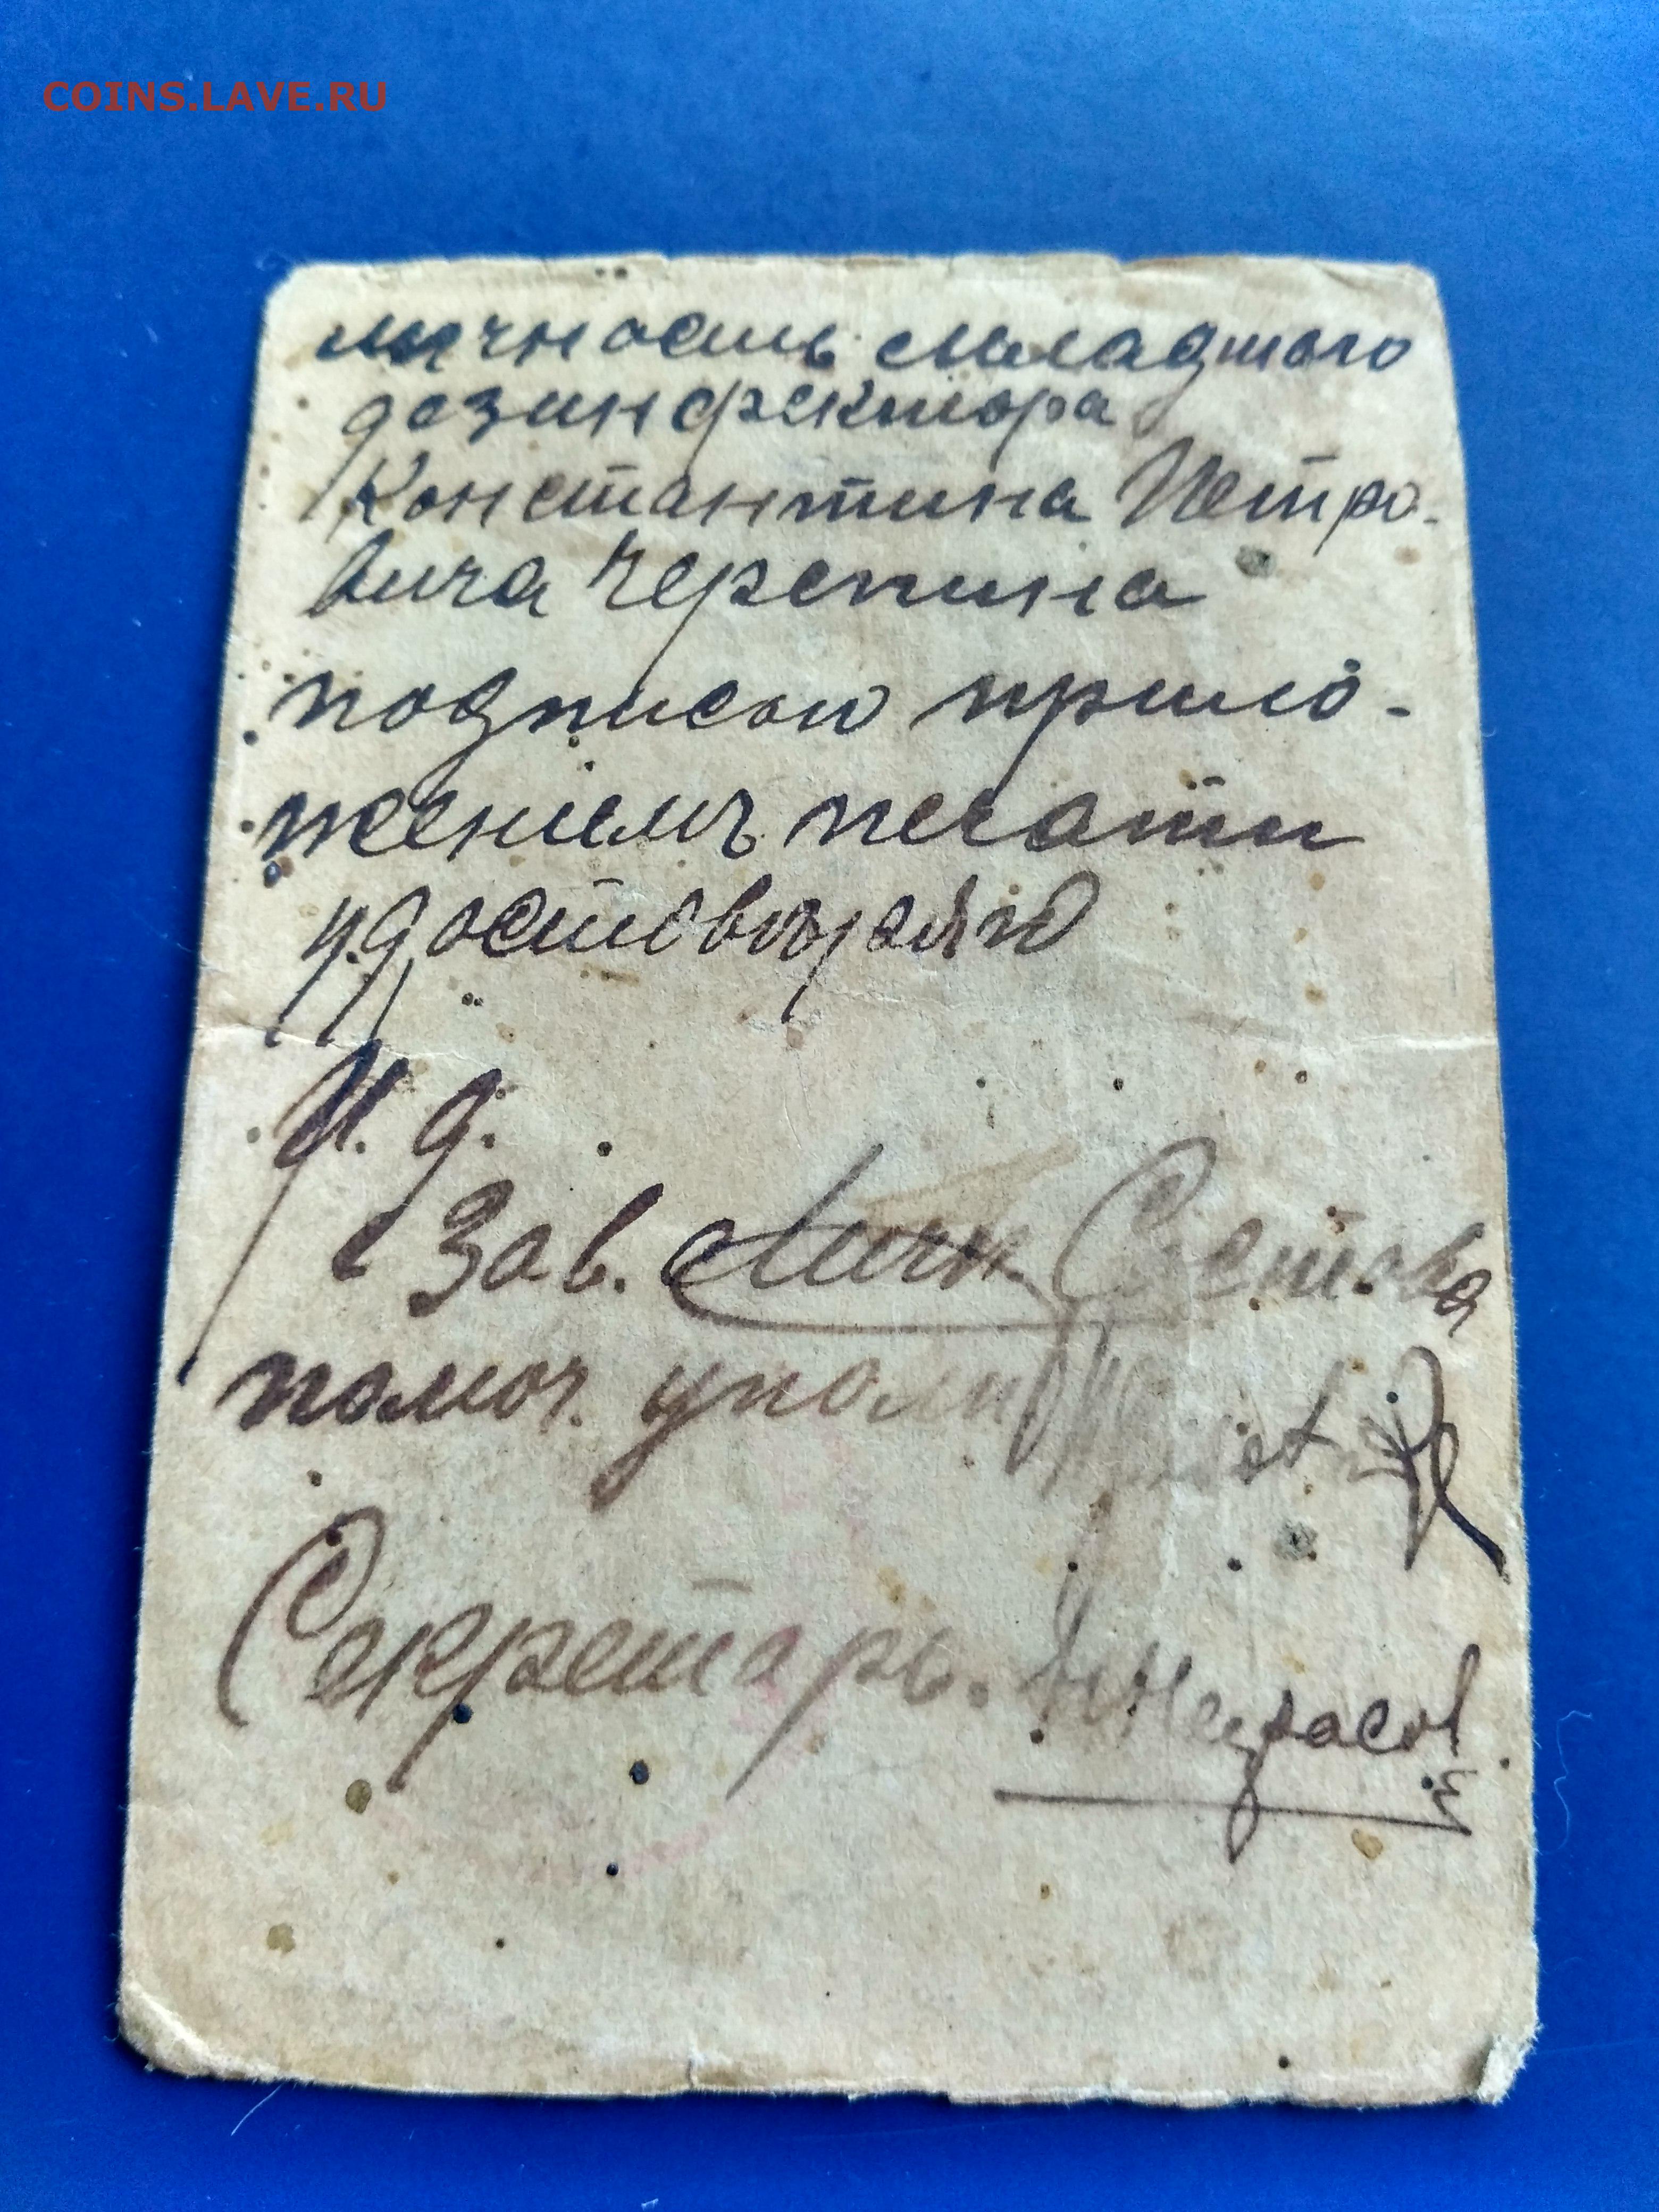 COINS.LAVE.RU
личность младшаго
дезинфектора
Константина Петро-
вича Черепина
подписью прило-
жениемъ печати
удостовѣряю
И. д.
Зав. Личн. Состава
помоч. уполн
Секретарь. Некрасов